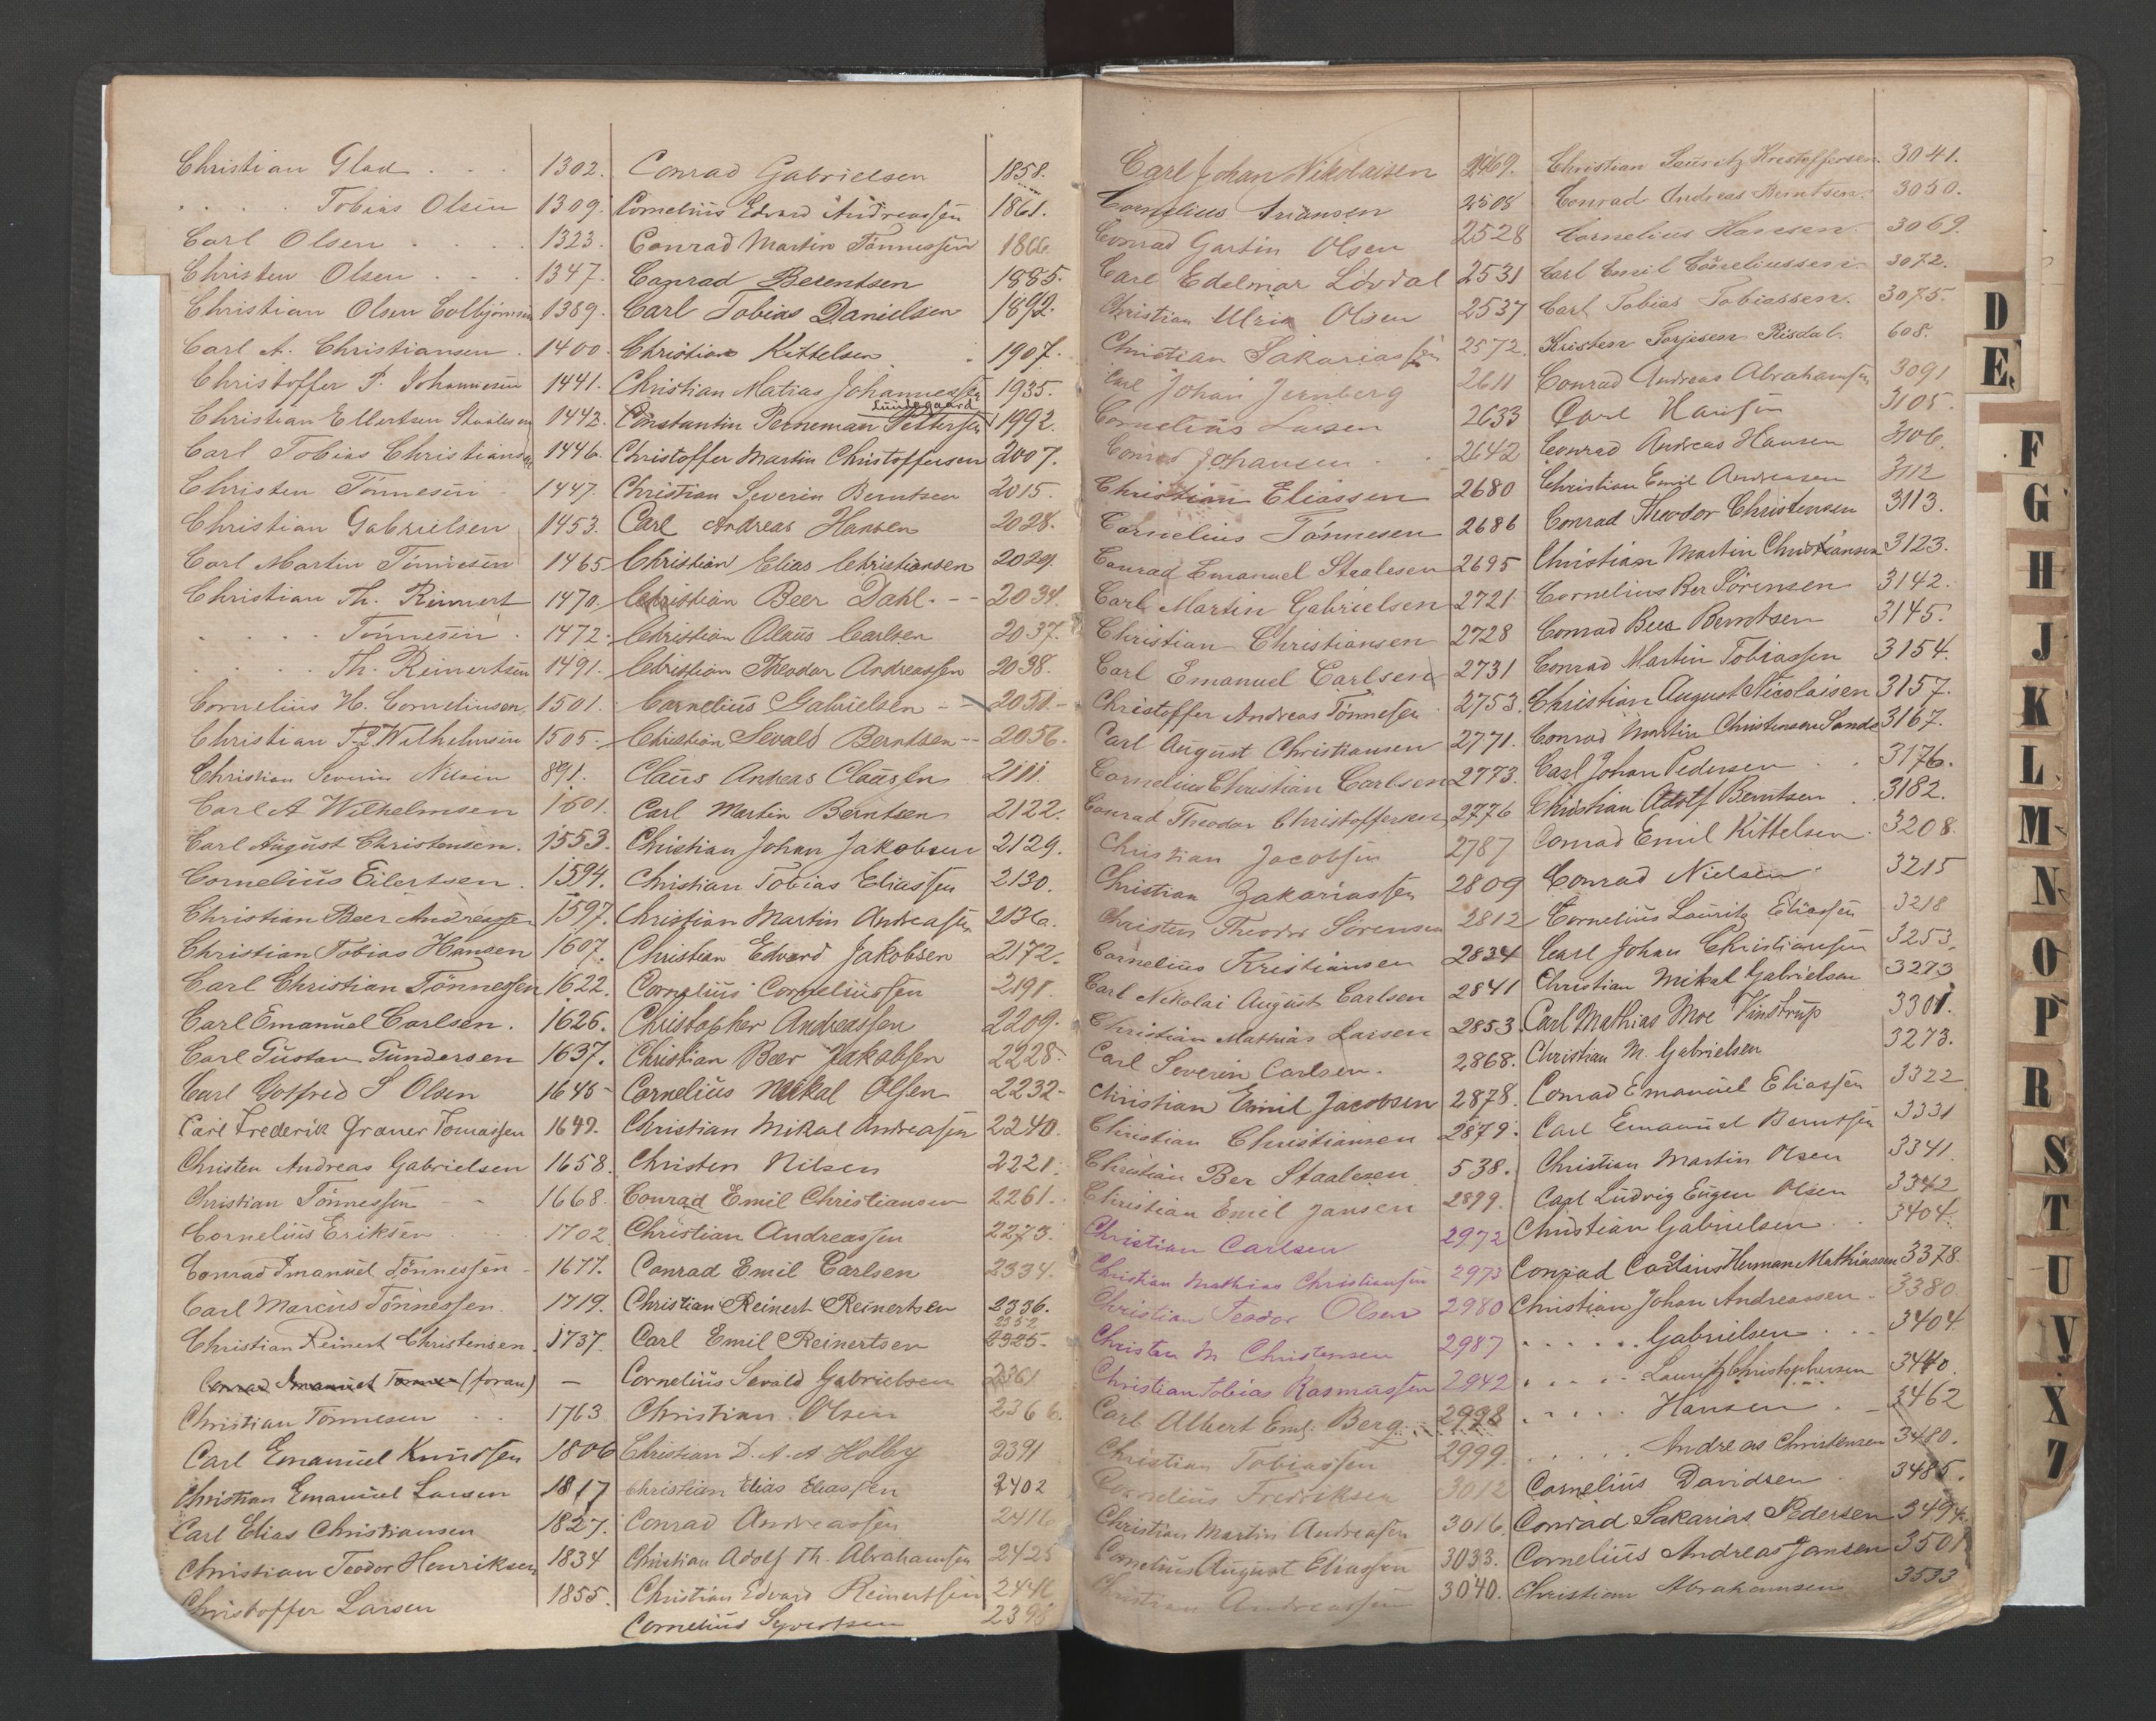 Christian Glad . . . 1302.
. . . . Tobias Olsen 1309.
Carl Olsen . . . . 1323.
Christen Olsen . . . 1347.
Christian Olsen Colbjörnsen 1389.
Carl A. Christiansen . 1400.
Christoffer P. Johannesen 1441.
Christian Ellertsen Staalesen 1442.
Carl Tobias Christiansen 1446.
Christen Tönnesen 1447.
Christian Gabrielsen 1453.
Carl Martin Tönnesen 1465
Christian Th. Reinert 1470.
. . . . Tönnesen . 1472.
. . . . Th. Reinertsen 1491.
Cornelius H. Corneliusen 1501.
Christian Wilhelmsen 1505.
Christian Severin Nilsen 891.
Carl A Wilhelmsen 1501.
Carl August Christensen. 1553.
Cornelius Eilertsen . 1594.
Christian Beer Andreassen 1597.
Christian Tobias Hansen 1607.
Carl Christian Tönnessen 1622.
Carl Emanuel Carlsen. 1626.
Carl Gustav Gundersen 1637.
Carl Gotfred S Olsen 1645
Carl Frederik Graner Tomassen 1649.
Christen Andreas Gabrielsen 1658.
Christian Tönnessen 1668.
Cornelius Eriksen 1702.
Conrad Emanuel Tönnessen 1677.
Carl Marcus Tönnessen. 1719.
Christian Reinert Christensen. 1737.
Conrad Emanuel (foran) —
Christian Tönnesen 1763
Carl Emanuel Knudsen 1806
Christian Emanuel Larsen 1817
Carl Elias Christiansen 1827.
Christian Teodor Henriksen 1834
Christoffer Larsen 1855.
Conrad Gabrielsen 1858.
Cornelius Edvard Andreassen 1861.
Conrad Martin Tönnessen 1866.
Conrad Berentsen 1885.
Carl Tobias Danielsen 1892.
Christian Kittelsen . 1907.
Christian Matias Johannessen 1935.
Lundegaard
Constantin Petterssen 1992.
Christoffer Martin Christoffersen 2007.
Christian Severin Berntsen 2015.
Carl Andreas Hansen 2028.
Christian Elias Christiansen 2029.
Christian Beer Dahl. -- 2034.
Christian Olaus Carlsen 2037.
Christian Theodor Andreassen 2038.
Cornelius Gabrielsen - 2051.-
Christian Sevald Berntsen -- 2056.
Claus Andreas Clausen 2111.
Carl Martin Berntsen 2122.
Christian Johan Jakobsen 2129.
Christian Tobias Eliassen 2130.
Christian Martin Andreassen 2136.
Christian Edvard Jakobsen 2172.
Cornelius Corneliussen 2191.
Christopher Andreassen 2209.
Christian Beer Jakobsen 2228.
Cornelius Mikal Olsen 2232-
Christian Mikal Andreassen 2240.
Christen Nilsen 2221.
Conrad Emil Christiansen 2261.
Christian Andreassen 2273.
Conrad Emil Carlsen 2334.
Christian Reinert Reinertsen 2336.
2352
Carl Emil Reinertsen 2325.
Cornelius Sevald Gabrielsen 2361
Christian Olsen 2366.
Christian D. A. A Holby 2391
Christian Elias Eliassen 2402
Conrad Andreassen 2416
Christian Adolf Th. Abrahamsen 2425
Christian Edvard Reinertsen 2446
Cornelius Syvertsen
Carl Johan Nikolaisen 2469.
Cornelius 2508
Conrad Gartin Olsen 2528
Carl Edelmar Lövdal 2531
Christian Ulrik Olsen 2537
Christian Sakariassen 2572.
Carl Johan Jernberg 2611
Cornelius Larsen 2633
Conrad Johansen . . 2642
Christian Eliassen 2680
Cornelius Tönnesen 2686
Conrad Emanuel Staalesen 2695
Carl Martin Gabrielsen 2721
Christian Christiansen 2728
Carl Emanuel Carlsen 2731
Christoffer Andreas Tönnesen 2753.
Carl August Christiansen 2771.
Cornelius Christian Carlsen 2773.
Conrad Theodor Christoffersen 2776
Christian Jacobsen 2787
Christian Zakariassen 2809
Christen Theodor Sörensen 2812
Cornelius Kristiansen 2834
Carl Nikolai August Carlsen 2841
Christian Mathias Larsen 2853.
Carl Severin Carlsen. 2868.
Christian Emil Jacobsen 2878.
Christian Christiansen 2879.
Christian Ber Staalesen 538.
Christian Emil Jansen 2899.
Christian Carlsen 2972
Christian Mathias Christiansen 2973
Christian Teodor Olsen 2980
Christen M Christensen 2987
Christian Tobias Rasmussen 2942
Carl Albert Emil Berg. 2998
Christian Tobiassen 2999.
Cornelius Fredriksen 3012
Christian Martin Andreasen 3016.
Cornelius August Eliassen 3033.
Christian Andreassen 3040.
Christian Lauritz Kristoffersen. 3041.
Conrad Andreas Berntsen. 3050.
Cornelius Hansen. 3069.
Carl Emil Corneliussen. 3072.
Carl Tobias Tobiassen. 3075.
Kristen Torjesen Risdal. 608.
Conrad Andreas Abrahamsen 3091
Carl Hansen 3105.
Conrad Andreas Hansen 3106.
Christian Emil Andreasen 3112
Conrad Theodor Christensen 3113.
Christian Martin Christiansen 3123.
Cornelius Ber Sörensen 3142.
Conrad Beer Berntsen 3145.
Conrad Martin Tobiassen 3154.
Christian August Nicolaisen 3157.
Conrad Martin Christensen Sande 3167.
Carl Johan Pedersen . . 3176.
Christian Adolf Berntsen . 3182.
Conrad Emil Kittelsen. 3208.
Conrad Nielsen. 3215
Cornelius Lauritz Eliassen 3218
Carl Johan Christiansen 3253.
Christian Mikal Gabrielsen 3273
Carl Mathias Moe Vinstrup 3301.
Christian M. Gabrielsen 3273.
Conrad Emanuel Eliassen 3322
Carl Emanuel Berntsen 3331
Christian Martin Olsen 3341
Carl Ludvig Eugen Olsen 3342
Christian Gabrielsen . . 3404.
Conrad Herman Mathiassen 3378.
Christian Johan Andreassen - 3380
. . . . . Gabrielsen . . 3404.
. . . . . Lauritz Christophersen 3440.
. . . . . Hansen . - 3462
. . . . . Andreas Christensen 3480.
Cornelius Davidsen . 3485.
Conrad Sakarias Pedersen 3494.
Cornelius Andreas Jansen 3501
Christian Abrahamsen 3533
D
E.
F
G
H
J
K
L
M
N
O
P
R
S
T
U
V
X
Z